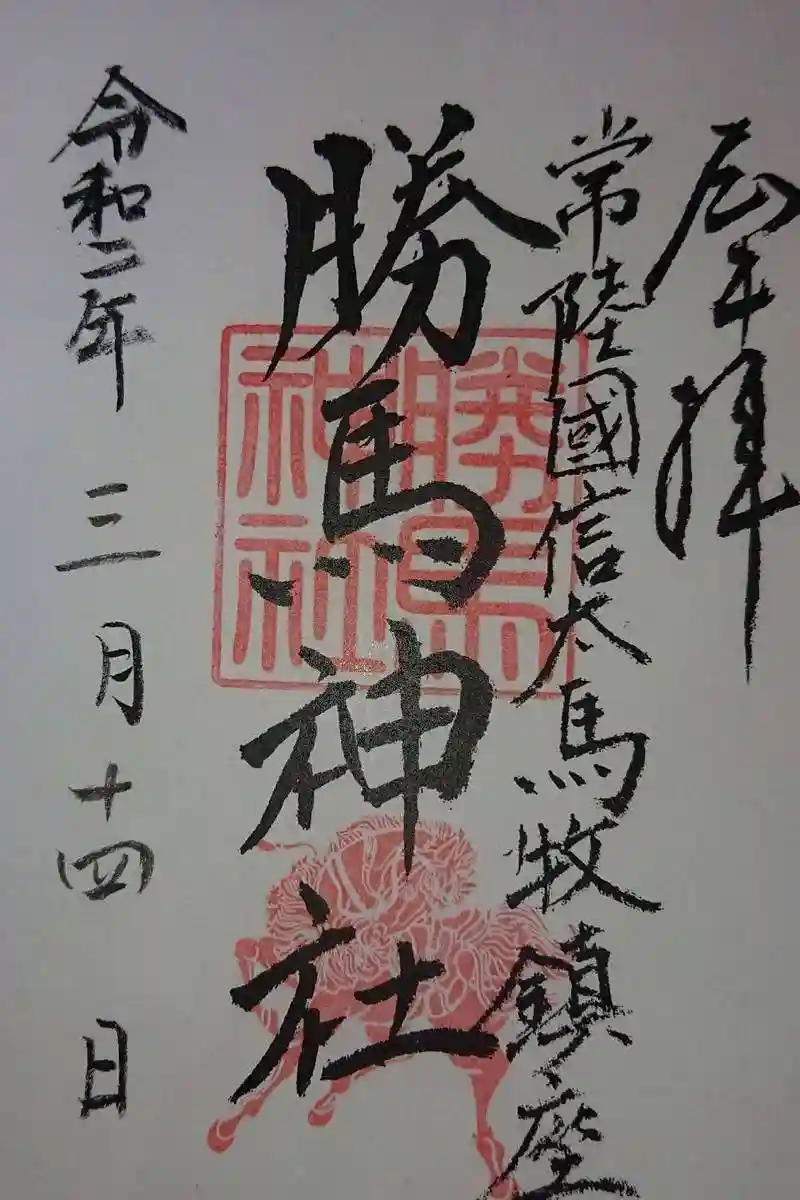 奉拝
常陸國信太馬牧鎮座
勝馬神社
令和二年三月十四日
勝馬
神社